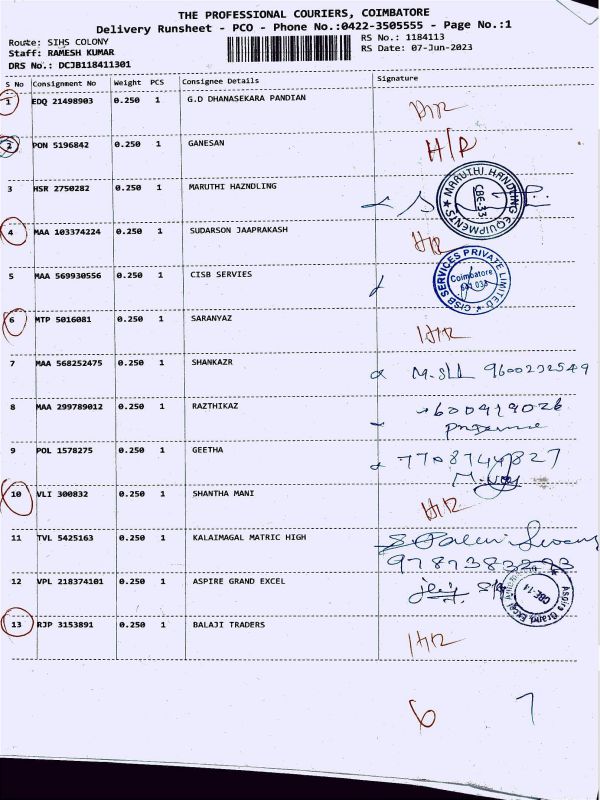 THE PROFESSIONAL COURIERS, COIMBATORE
Delivery Runsheet - PCO - Phone No.:0422-3505555 - Page No.:1
Route: SIHS COLONY
Staff: RAMESH KUMAR
DRS No.: DCJB118411301
RS No.: 1184113
RS Date: 07-Jun-2023
S No Consignment No Weight PCS Consignee Details Signature
1 EDQ 21498903 0.250 1 G.D DHANASEKARA PANDIAN
2 PON 5196842 0.250 1 GANESAN H/R
3 HSR 2750282 0.250 1 MARUTHI HAZNDLING
MARUTHI HANDLING EQUIPMENTS CBE-33
4 MAA 103374224 0.250 1 SUDARSON JAAPRAKASH H/R
5 MAA 569930556 0.250 1 CISB SERVIES
CISB SERVICES PRIVATE LIMITED Coimbatore
6 MTP 5016081 0.250 1 SARANYAZ H/R
7 MAA 568252475 0.250 1 SHANKAZR 9600232549
8 MAA 299789012 0.250 1 RAZTHIKAZ
9 POL 1578275 0.250 1 GEETHA
10 VLI 300832 0.250 1 SHANTHA MANI H/R
11 TVL 5425163 0.250 1 KALAIMAGAL MATRIC HIGH
12 VPL 218374101 0.250 1 ASPIRE GRAND EXCEL
CBE-14
13 RJP 3153891 0.250 1 BALAJI TRADERS H/R
6 7